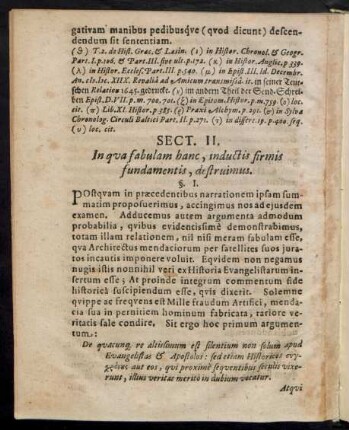 gativam manibus pedibusqve (qvod dicunt) descen-
dendum sit sententiam.
Part. I. p. 106. & Part. III. sive ult. p. 172. (κ) in Hister. Anglic. p. 339.
(λ) in Histor. Ecclef. Part. III. p. 540. (μ) in Epist. III. Id. Decembr.
Relation 1645. gedruckt. (ξ) im andern Theil der Send-Schrei-
cit. (π) Lib. XI. Histor. p. 785.
Chronolog. Circuli Baltici Part. II. p. 271.
(υ) loc. cit.
SECT. II.
In qva fabulam hanc, inductis firmis
fundamentis, destruimus.
§. I.
POstqvam in præcedentibus narrationem ipsam sum-
matim proposuerimus, accingimus nos ad ejusdem
examen. Adducemus autem argumenta admodum
probabilia, qvibus evidentissimè demonstrabimus,
totam illam relationem, nil nisi meram fabulam esse,
qva Architectus mendaciorum per satellites suos jura-
tos incautis imponere voluit. Eqvidem non negamus
nugis istis nonnihil veri ex Historia Evangelistarum in-
sertum esse; At proinde integrum commentum fide
historicâ suscipiendum esse, qvis dixerit. Solemne
qvippe ac freqvens est Mille fraudum Artifici, menda-
cia sua in perniciem hominum fabricata, rariore ve-
ritatis sale condire. Sit ergo hoc primum argumen-
tum:
De qvacunq; re altissimum est silentium non solum apud
Evangelistas & Apostolos: sed etiam Historicos
aut eos, qvi proximè seqventibus seculis vixe-
runt, illius veritas meritò in dubium vocatur.
Atqvi